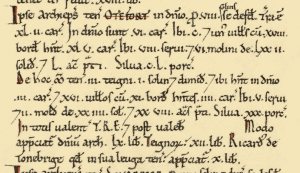 Ipse Archieps ten Oteford in dñio. p. viii. solins se defd. Tra. e
xl. ii. car. In dñio sunt. vi. car. 7 c. 7 un uilts cū. xviii.
bord hñt. xl. v. car. Ibi. viii. serui. 7 vi. molini de. lxx. ii
solid. 7 l. ac p̃ti. Silua. c. l. porc.
De hoc m. ten. iii. teigni. i. solin 7 dimid. 7 ibi hñt in dñio
iii. car. 7 xvi. uillos cū. xi. bord hñtes. iiii. car. Ibi. v. serui
7 ii. mold de. xx. iiii. sol. 7 xx. viii. ac p̃ti. Silua. xxx. porc.
In totis ualent T.R.E. 7 post ualeb Modo
app̃ciat dñiū arch. lx. lib. Teignorū. xii. lib. Ricard de
Tonebrige qd in sua leuga ten. app̃ciat. x. lib.